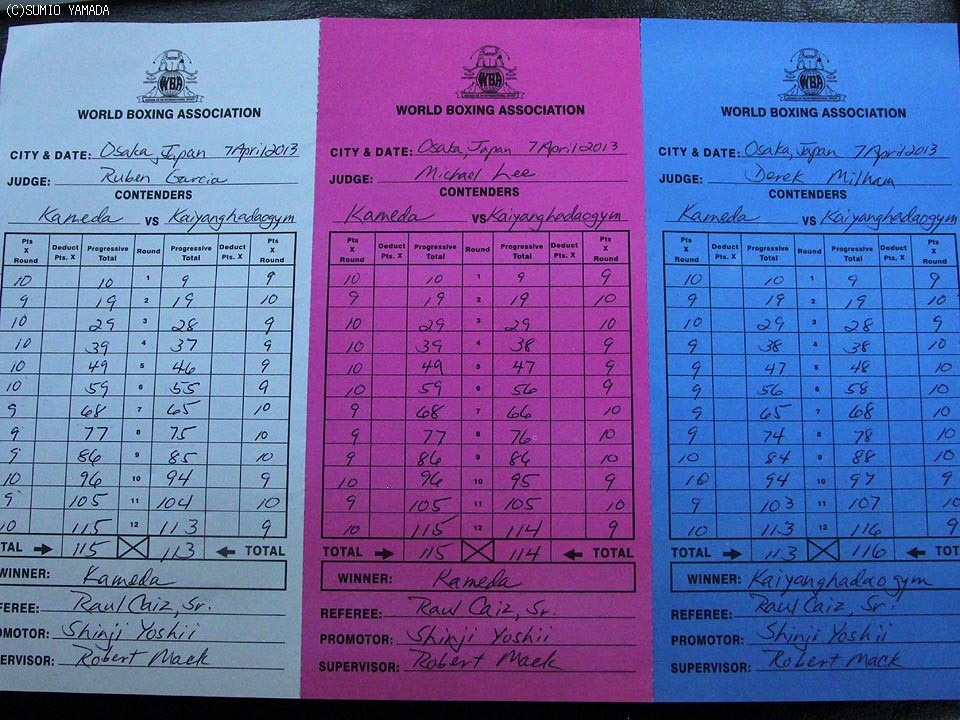 (C)SUMIO YAMADA
WBA
WORLD BOXING ASSOCIATION
CITY & DATE: Osaka, Japan 7 April 2013
JUDGE: Ruben Garcia
CONTENDERS
Kameda VS Kaiyanghadaogym
Pts X Round Deduct Pts. X Progressive Total Round Progressive Total Deduct Pts. X Pts X Round
10 10 1 9 9
9 19 2 19 10
10 29 3 28 9
10 39 4 37 9
10 49 5 46 9
10 59 6 55 9
9 68 7 65 10
9 77 8 75 10
9 86 9 85 10
10 96 10 94 9
9 105 11 104 10
10 115 12 113 9
TAL 115 113 TOTAL
WINNER: Kameda
EFEREE: Raul Caiz, Sr.
OMOTOR: Shinji Yoshii
ERVISOR: Robert Mack
WBA
WORLD BOXING ASSOCIATION
CITY & DATE: Osaka, Japan 7 April 2013
JUDGE: Michael Lee
CONTENDERS
Kameda VS Kaiyanghadaogym
Pts X Round Deduct Pts. X Progressive Total Round Progressive Total Deduct Pts. X Pts X Round
10 10 1 9 9
9 19 2 19 10
10 29 3 29 10
10 39 4 38 9
10 49 5 47 9
10 59 6 56 9
9 68 7 66 10
9 77 8 76 10
9 86 9 86 10
10 96 10 95 9
9 105 11 105 10
10 115 12 114 9
TOTAL 115 114 TOTAL
WINNER: Kameda
REFEREE: Raul Caiz, Sr.
PROMOTOR: Shinji Yoshii
SUPERVISOR: Robert Mack
WBA
WORLD BOXING ASSOCIATION
CITY & DATE: Osaka, Japan 7 April 2013
JUDGE: Derek Milham
CONTENDERS
Kameda VS Kaiyanghadaogym
Pts X Round Deduct Pts. X Progressive Total Round Progressive Total Deduct Pts. X Pts X Round
10 10 1 9 9
9 19 2 19 10
10 29 3 28 9
9 38 4 38 10
9 47 5 48 10
9 56 6 58 10
9 65 7 68 10
9 74 8 78 10
10 84 9 88 10
10 94 10 97 9
9 103 11 107 10
10 113 12 116 9
TOTAL 113 116 TOT
WINNER: Kaiyanghadaogym
REFEREE: Raul Caiz, Sr.
PROMOTOR: Shinji Yoshii
SUPERVISOR: Robert Mack